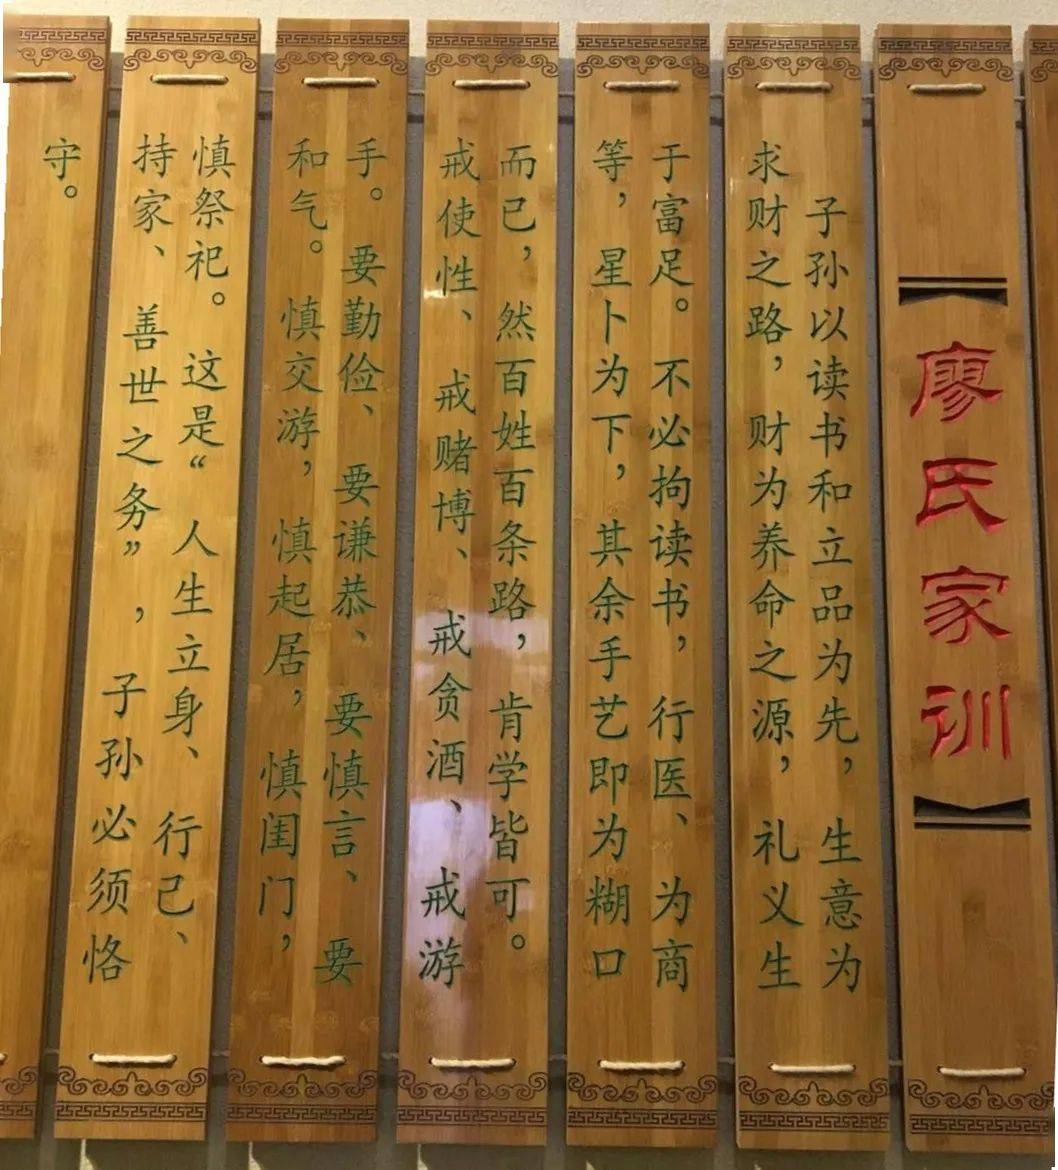 【廖氏家训】
子孙以读书和立品为先，生意为
求财之路，财为养命之源，礼义生
于富足。不必拘读书，行医、为商
等，星卜为下，其余手艺即为糊口
而已，然百姓百条路，肯学皆可。
戒使性、戒赌博、戒贪酒、戒游
手。要勤俭、要谦恭、要慎言、要
和气。慎交游，慎起居，慎闺门，
慎祭祀。这是“人生立身、行己、
持家、善世之务”，子孙必须恪
守。